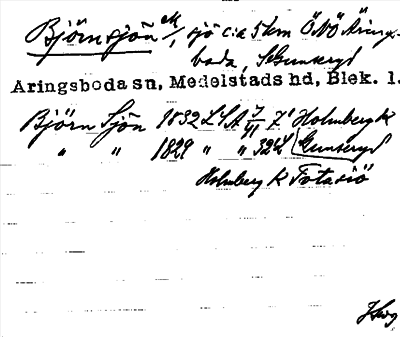 Björnsjön ek/, sjö c:a 5 km ÖNÖ Äring-
boda, Gunseryd
Aringsboda sn, Medelstads hd, Blek. l.
Björn Sjön 1832 LSA 7/41 Z1 Holmberg k
" " 1829 " " 32 Gunseryd
Holmberg k